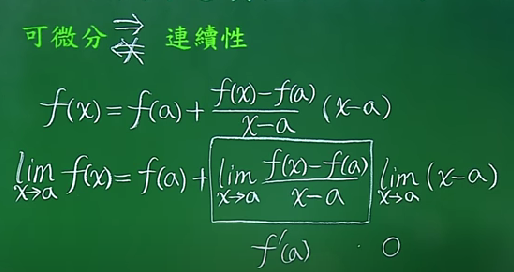 可微分 ⇄ 連續性
f(x)=f(a)+\frac{f(x)-f(a)}{x-a}(x-a)
\lim_{x→a} f(x)=f(a)+\lim_{x→a}\frac{f(x)-f(a)}{x-a} \lim_{x→a}(x-a)
f'(a) · 0